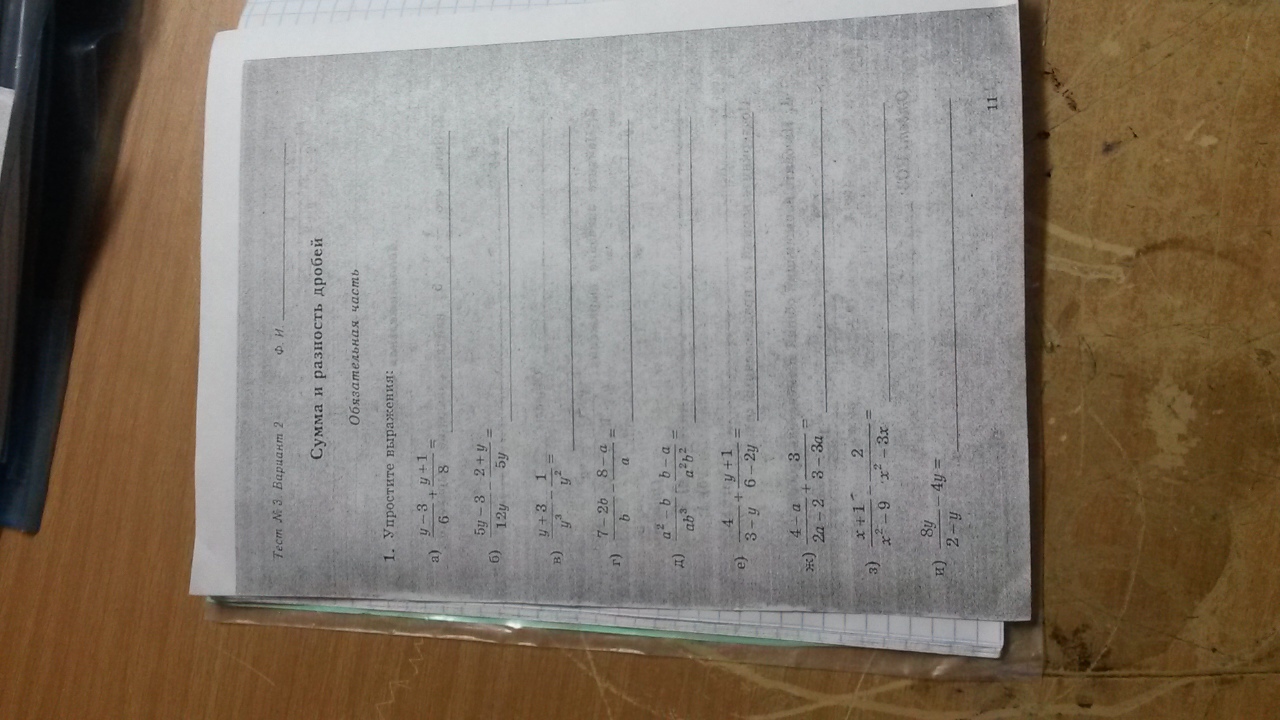 Тест № 3. Вариант 2 Ф. И.
Сумма и разность дробей
Обязательная часть
1. Упростите выражения:
а) (y − 3)/6 + (y + 1)/8 =
б) (5y − 3)/(12y) − (2 + y)/(5y) =
в) (y + 3)/y³ − 1/y² =
г) (7 − 2b)/b − (8 − a)/a =
д) (a² − b)/(ab³) − (b − a)/(a²b²) =
е) 4/(3 − y) + (y + 1)/(6 − 2y) =
ж) (4 − a)/(2a − 2) + 3/(3 − 3a) =
з) (x + 1)/(x² − 9) − 2/(x² − 3x) =
и) 8y/(2 − y) − 4y =
11